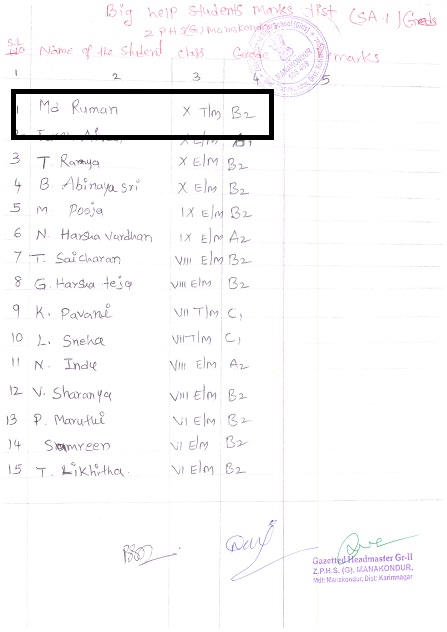 Big help students marks list (SA-1) Grades
Z P H S (G) Manakondur
S.L No Name of the Student class Grade Remarks
1 2 3 4 5
1 Md Ruman X T/m B2
2 X E/m
3 T. Ramya X E/m B2
4 B. Abinaya sri X E/m B2
5 M Pooja IX E/m B2
6 N. Harsha vardhan IX E/m A2
7 T. Saicharan VIII E/m B2
8 G. Harsha teja VIII E/m B2
9 K. Pavani VII T/m C1
10 L. Sneha VII T/m C1
11 N. Indu VIII E/m A2
12 V. Sharanya VIII E/m B2
13 P. Maruthi VI E/m B2
14 Samreen VI E/m B2
15 T. Likhitha. VI E/m B2
Gazetted Headmaster Gr-II
Z.P.H.S. (G). MANAKONDUR,
Mdl: Manakondur, Dist: Karimnagar